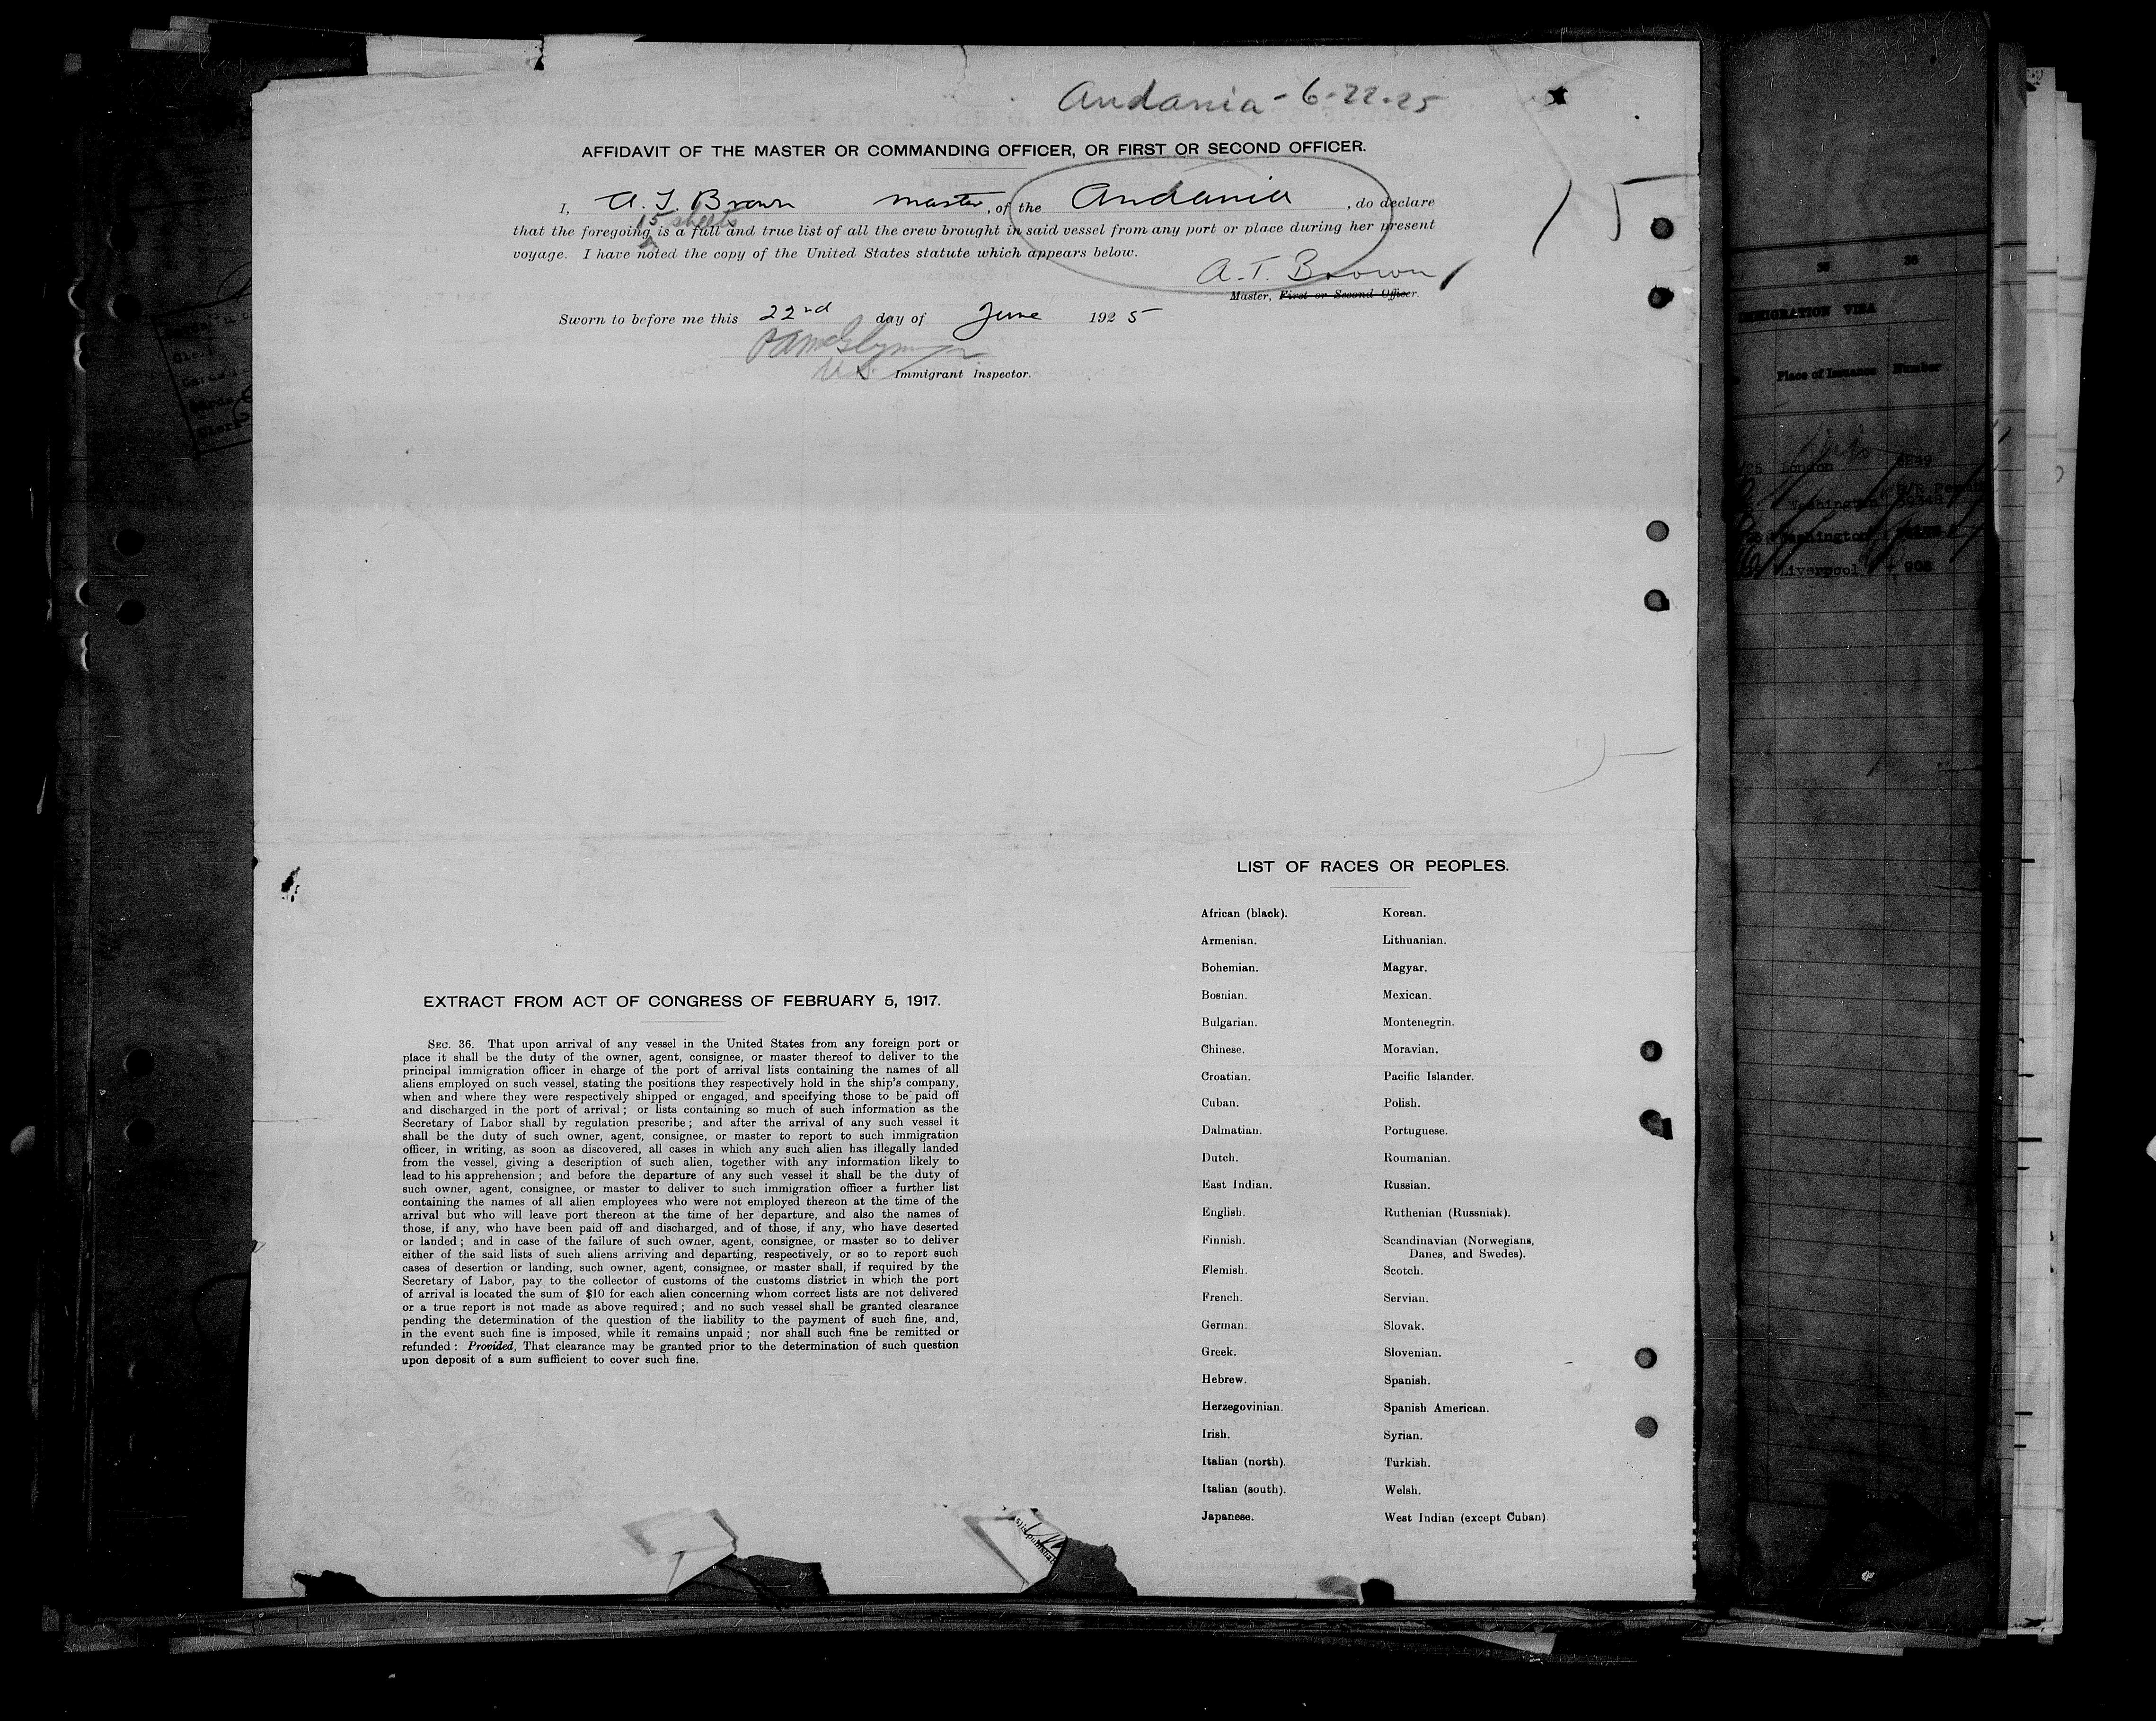 Andania - 6-22-25
AFFIDAVIT OF THE MASTER OR COMMANDING OFFICER, OR FIRST OR SECOND OFFICER.
I, A. T. Brown master, of the Andania, do declare
15 sheets
that the foregoing is a full and true list of all the crew brought in said vessel from any port or place during her present
voyage. I have noted the copy of the United States statute which appears below.
A. T. Brown
Master, First or Second Officer.
Sworn to before me this 22nd day of June 1925
U.S. Immigrant Inspector.
15
LIST OF RACES OR PEOPLES.
African (black). Korean.
Armenian. Lithuanian.
Bohemian. Magyar.
Bosnian. Mexican.
Bulgarian. Montenegrin.
Chinese. Moravian.
Croatian. Pacific Islander.
Cuban. Polish.
Dalmatian. Portuguese.
Dutch. Roumanian.
East Indian. Russian.
English. Ruthenian (Russniak).
Finnish. Scandinavian (Norwegians,
Danes, and Swedes).
Flemish. Scotch.
French. Servian.
German. Slovak.
Greek. Slovenian.
Hebrew. Spanish.
Herzegovinian. Spanish American.
Irish. Syrian.
Italian (north). Turkish.
Italian (south). Welsh.
Japanese. West Indian (except Cuban)
EXTRACT FROM ACT OF CONGRESS OF FEBRUARY 5, 1917.
SEC. 36. That upon arrival of any vessel in the United States from any foreign port or
place it shall be the duty of the owner, agent, consignee, or master thereof to deliver to the
principal immigration officer in charge of the port of arrival lists containing the names of all
aliens employed on such vessel, stating the positions they respectively hold in the ship's company,
when and where they were respectively shipped or engaged, and specifying those to be paid off
and discharged in the port of arrival; or lists containing so much of such information as the
Secretary of Labor shall by regulation prescribe; and after the arrival of any such vessel it
shall be the duty of such owner, agent, consignee, or master to report to such immigration
officer, in writing, as soon as discovered, all cases in which any such alien has illegally landed
from the vessel, giving a description of such alien, together with any information likely to
lead to his apprehension; and before the departure of any such vessel it shall be the duty of
such owner, agent, consignee, or master to deliver to such immigration officer a further list
containing the names of all alien employees who were not employed thereon at the time of the
arrival but who will leave port thereon at the time of her departure, and also the names of
those, if any, who have been paid off and discharged, and of those, if any, who have deserted
or landed; and in case of the failure of such owner, agent, consignee, or master so to deliver
either of the said lists of such aliens arriving and departing, respectively, or so to report such
cases of desertion or landing, such owner, agent, consignee, or master shall, if required by the
Secretary of Labor, pay to the collector of customs of the customs district in which the port
of arrival is located the sum of $10 for each alien concerning whom correct lists are not delivered
or a true report is not made as above required; and no such vessel shall be granted clearance
pending the determination of the question of the liability to the payment of such fine, and,
in the event such fine is imposed, while it remains unpaid; nor shall such fine be remitted or
refunded: Provided, That clearance may be granted prior to the determination of such question
upon deposit of a sum sufficient to cover such fine.
IMMIGRATION VISA
Place of Issuance Number
London
Washington
Washington
Liverpool 908